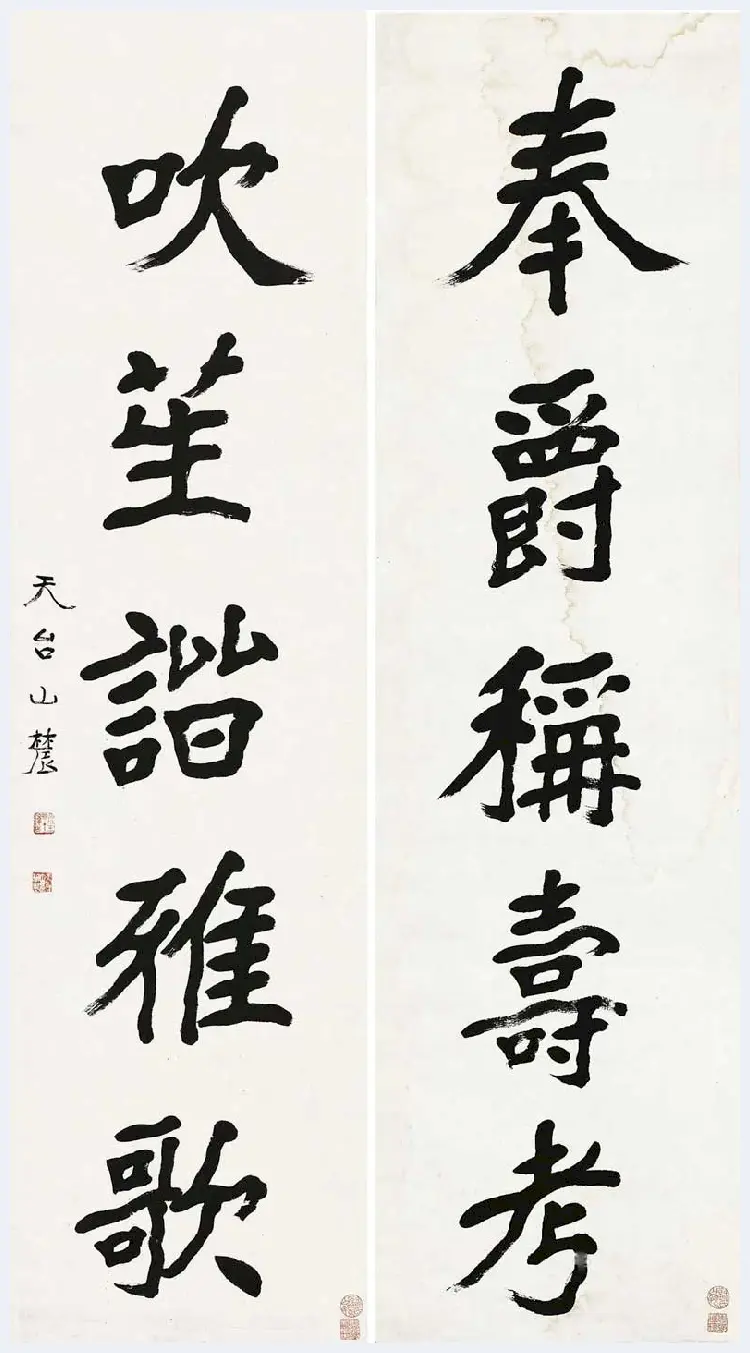 奉爵稱壽考
吹笙諧雅歌
天台山農